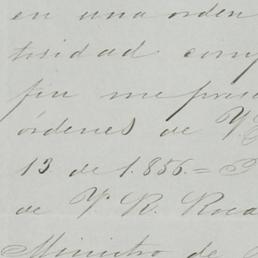 en una orden
tividad com
fin me pres
órdenes de V.
13 de 1.856.=
de V. R. Roca
Ministro de